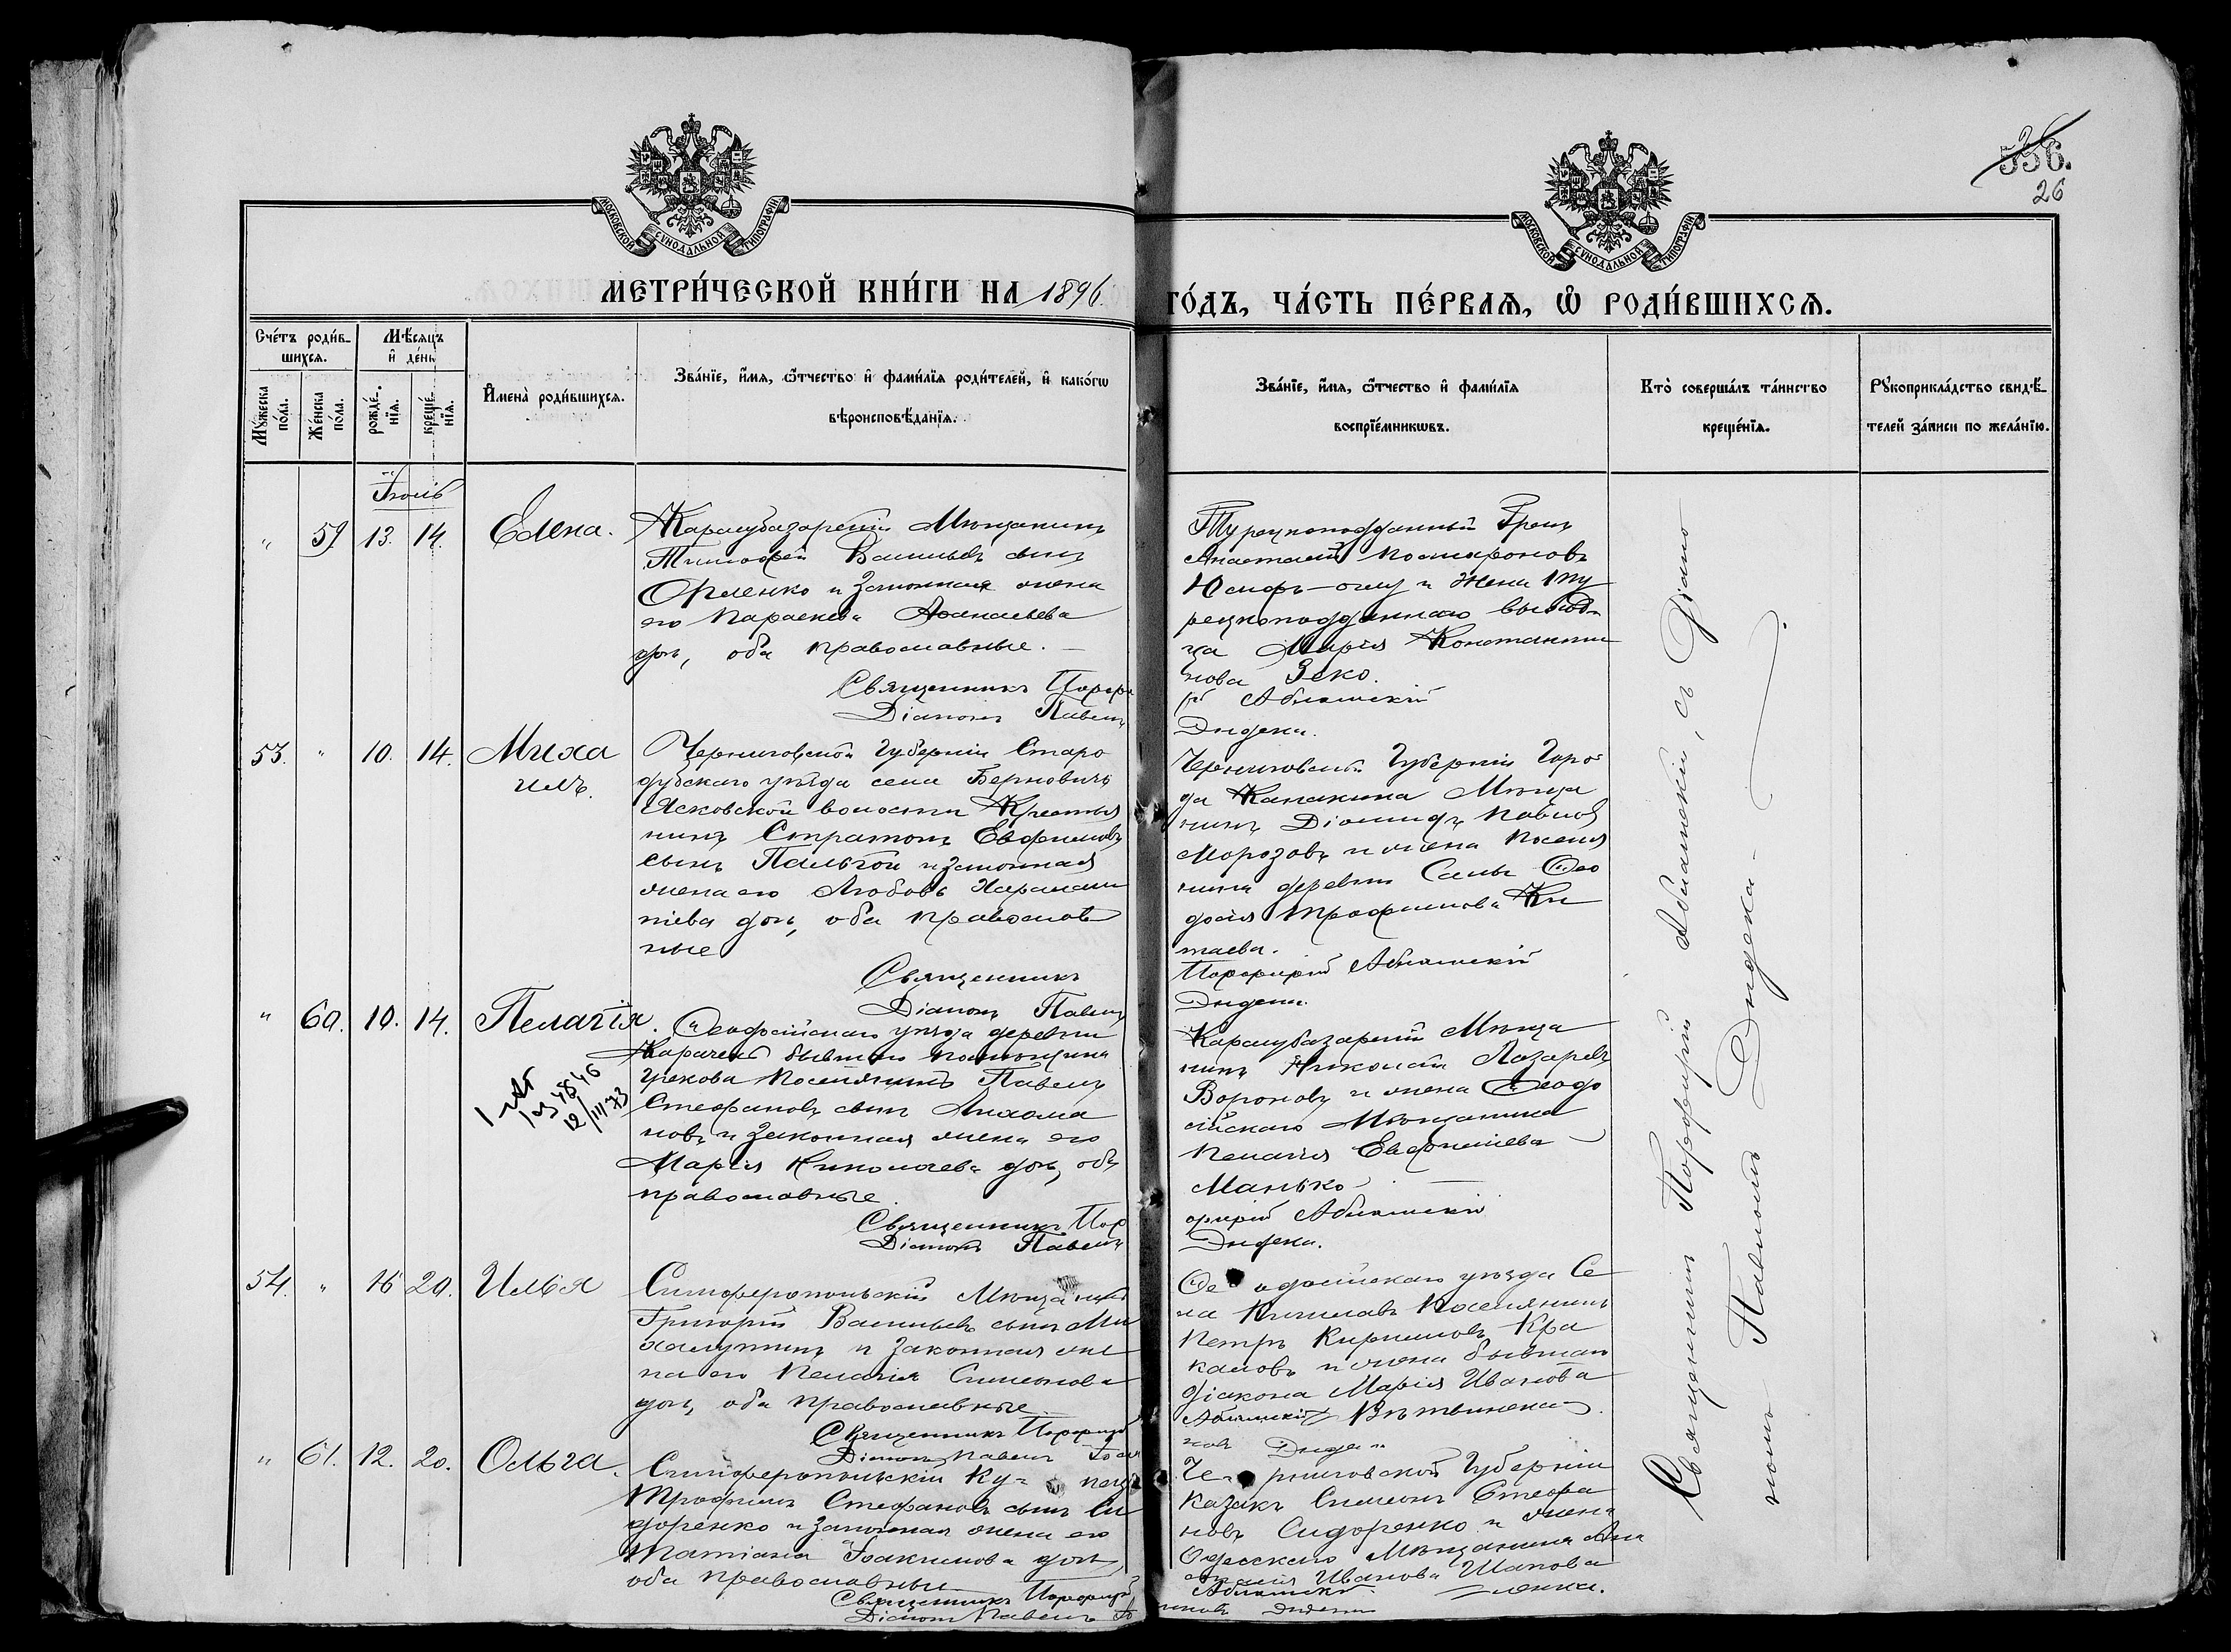 556.
26
МОСКОВСКОЙ СУНОДАЛЬНОЙ ТИПОГРАФІИ
МОСКОВСКОЙ СУНОДАЛЬНОЙ ТИПОГРАФІИ
МЕТРИ́ЧЕСКОЙ КНИ́ГИ НА 1896
ГО́ДЪ, ЧА́СТЬ ПЕ́РВАѦ, Ѡ҆ РОДИ́ВШИХСѦ.
Сче́тъ роди́в-
шихся.
Мѣ́сяцъ
и҆ де́нь
Мꙋ́жеска
по́ла.
Же́нска
по́ла.
рожде́-
нїя.
креще́-
нїя.
И҆мена̀ роди́вшихся.
Зва́нїе, и҆́мя, ѻ҆́тчество и҆ фами́лїя роди́телей, и҆ како́гѡ
вѣроисповѣ́данїя.
Зва́нїе, и҆́мя, ѻ҆́тчество и҆ фами́лїя
воспрїе́мникѡвъ.
Кто̀ соверша́лъ та́инство
креще́нїя.
Рꙋкоприкла́дство свидѣ́-
телей за́писи по жела́нїю.
Іюль
„ 59. 13. 14. Елена.
Карасубазарскій Мѣщанинъ
Тимофей Васильевъ сынъ
Орленко и законная жена
его Параскева Аѳанасьева
дочь, оба православные. —
Священникъ Порфи
Діаконъ Павелъ
Турецкоподданный Грекъ
Анастасій
Юсифъ-оглу и жена Ту
рецкоподданнаго
ца Марія Константи
нова Зеко.
рій Абламскій
Дидека.
53. „ 10. 14. Миха
илъ.
Черниговской Губерніи Старо
дубскаго уѣзда села Берновичъ
Ясковской волости Крестья
нинъ Стратонъ Евфимовъ
сынъ и законная
жена его Любовь Харлам
піева дочь, оба православ
ные
Священникъ
Діаконъ Павелъ
Черниговской Губерніи Горо
да Мѣща
нинъ Діомидъ Павлов
Морозовъ и жена поселя
нина деревни Салы Ѳео
досія Трофимова Ки
таева.
Порфирій Абламскій
Дидека.
„ 60. 10. 14. Пелагія.
Ѳеодосійскаго уѣзда деревни
бывшаго помѣщика
Грекова Поселянинъ Павелъ
Стефановъ сынъ
новъ и законная жена его
Марія Николаева дочь, оба
православные.
Священникъ Пор
Діаконъ Павелъ
12/III 73
Карасубазарскій Мѣща
нинъ Николай Лазаревъ
Вороновъ и жена Ѳеодо
сійскаго Мѣщанина
Пелагія Евфиміева
Манько.
фирій Абламскій
Дидека.
54. „ 16 20. Илья
Симферопольскій Мѣщанинъ
Григорій Васильевъ сынъ Ми
халуткинъ и законная же
на его Пелагія Симеонова
дочь, оба православные.
Священникъ Порфирій
Діаконъ Павелъ
Ѳеодосійскаго уѣзда Се
ла Кишлавъ Поселянинъ
Петръ Кирилловъ Кра
каловъ и жена бывшаго
діакона Марія Иванова
Абламскій
Дидека
„ 61. 12. 20. Ольга.
Симферопольскій Купецъ
Трофимъ Стефановъ сынъ Си
доренко и законная жена его
Татіана Іоакимова дочь,
оба православные
Священникъ Порфирій
Діаконъ Павелъ
Черниговской Губерніи
Казакъ Симеонъ Стефа
новъ Сидоренко и жена
Одесскаго Мѣщанина
Иванова Шапова
ленка.
Абламскій
Дидека
Священникъ Порфирій Абламскій, съ Діако
номъ Павломъ Дидека —